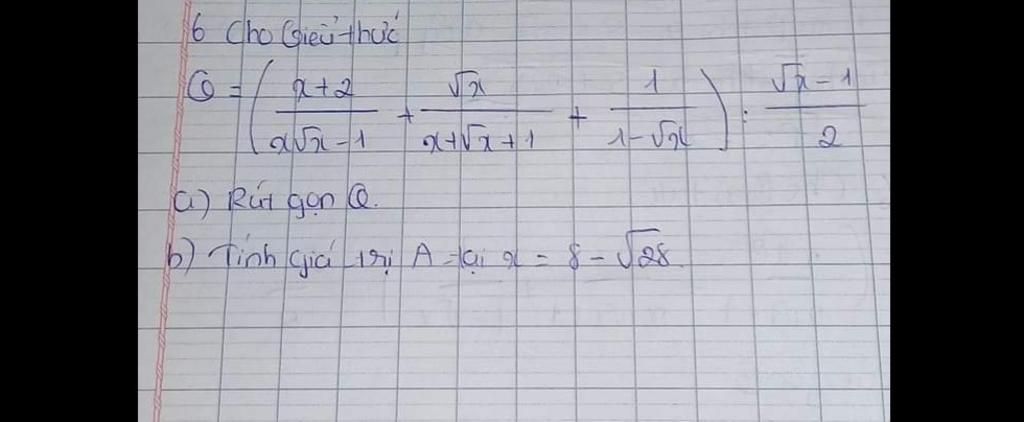 6 Cho Giểu thức
Q = ( x+2 / x√x - 1 + √x / x+√x+1 + 1 / 1-√x ) : √x - 1 / 2
a) Rút gọn Q.
b) Tính giá trị A tại x = 8 - √28